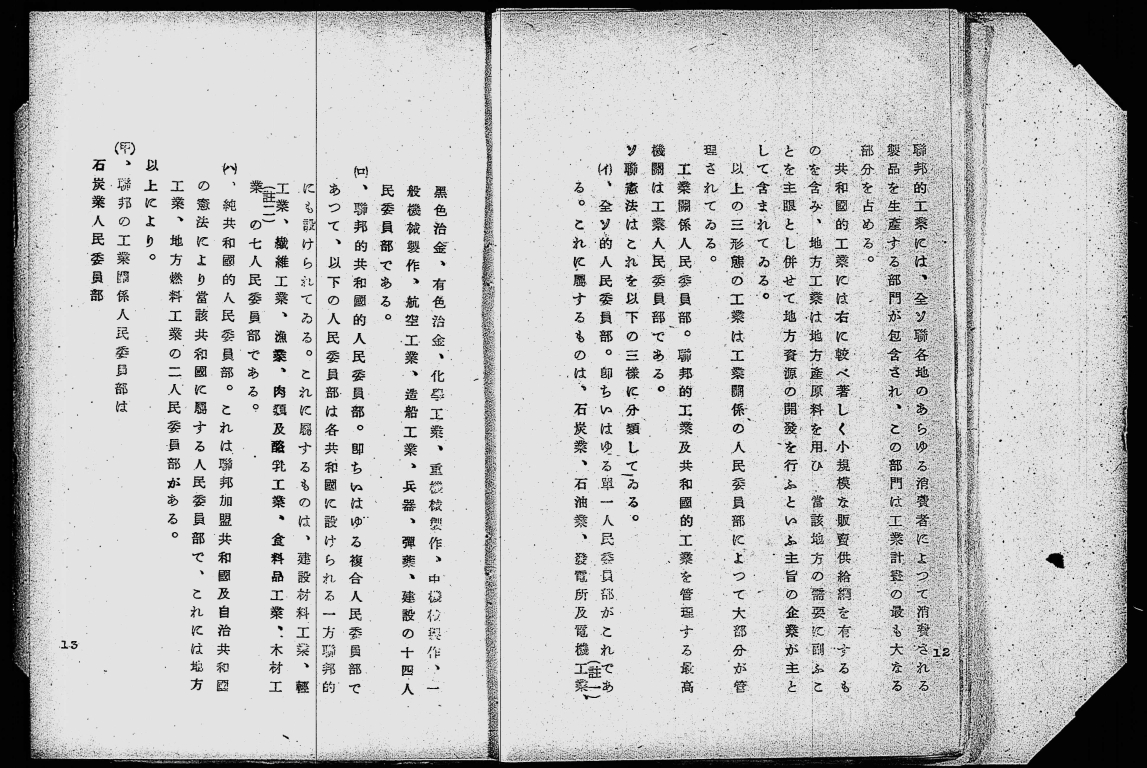 聯邦的工業には、全ソ聯各地のあらゆる消費者によつて消費される
製品を生産する部門が包含され、この部門は工業計畫の最も大なる
部分を占める。
共和國的工業には右に較べ著しく小規模な販賣供給網を有するも
のを含み、地方工業は地方産原料を用ひ、當該地方の需要に副ふこ
とを主眼とし併せて地方資源の開發を行ふといふ主旨の企業が主と
して含まれてゐる。
以上の三形態の工業は工業關係の人民委員部によつて大部分が管
理されてゐる。
工業關係人民委員部。聯邦的工業及共和國的工業を管理する最高
機關は工業人民委員部である。
ソ聯憲法はこれを以下の三樣に分類してゐる。
(イ)、全ソ的人民委員部。卽ちいはゆる單一人民委員部がこれであ
る。これに屬するものは、石炭業、石油業、發電所及電機工業、(註一)
12
黑色冶金、有色冶金、化學工業、重機械製作、中機械製作、一
般機械製作、航空工業、造船工業、兵器、彈藥、建設の十四人
民委員部である。
(ロ)、聯邦的共和國的人民委員部。卽ちいはゆる複合人民委員部で
あつて、以下の人民委員部は各共和國に設けられる一方聯邦的
にも設けられてゐる。これに屬するものは、建設材料工業、輕
工業、纎維工業、漁業、肉類及酪乳工業、食料品工業、木材工
業(註二)の七人民委員部である。
(ハ)、純共和國的人民委員部。これは聯邦加盟共和國及自治共和國
の憲法により當該共和國に屬する人民委員部で、これには地方
工業、地方燃料工業の二人民委員部がある。
以上により。
(甲)、聯邦の工業關係人民委員部は
石炭業人民委員部
13